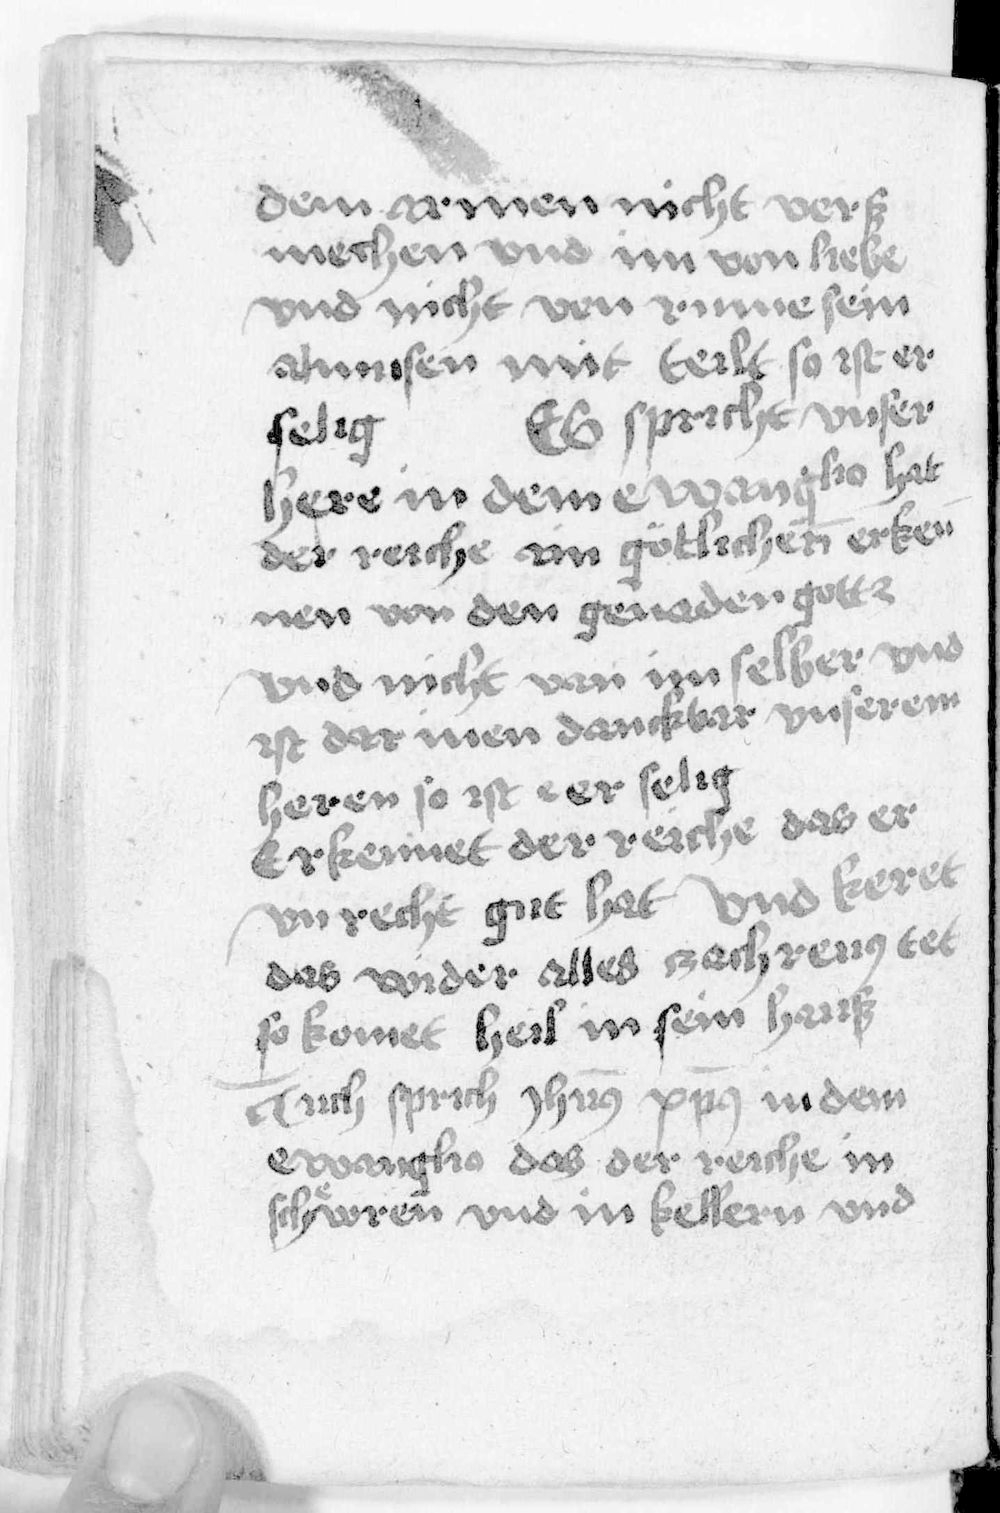 dem armen nicht versz
mechen vnd im von liebe
vnd nicht von rume sein
almusen mit teilt so ist er
selig Es spricht vnser
here in dem ewanglio hat
der reiche ain götlichen̄ erken̄
nen von den genaden gottz
vnd nicht van im selber vnd
ist dar inen danckbar vnserem
heren so ist er selig
Erkennet der reiche das er
vnrecht gut hat Vnd keret
das wider alles zachreus tet
so komet heil in sein hausz
Auch sprich yhūs xp̄s in dem
ewanglio das der reiche in
scheͤwren vnd in kellern vnd